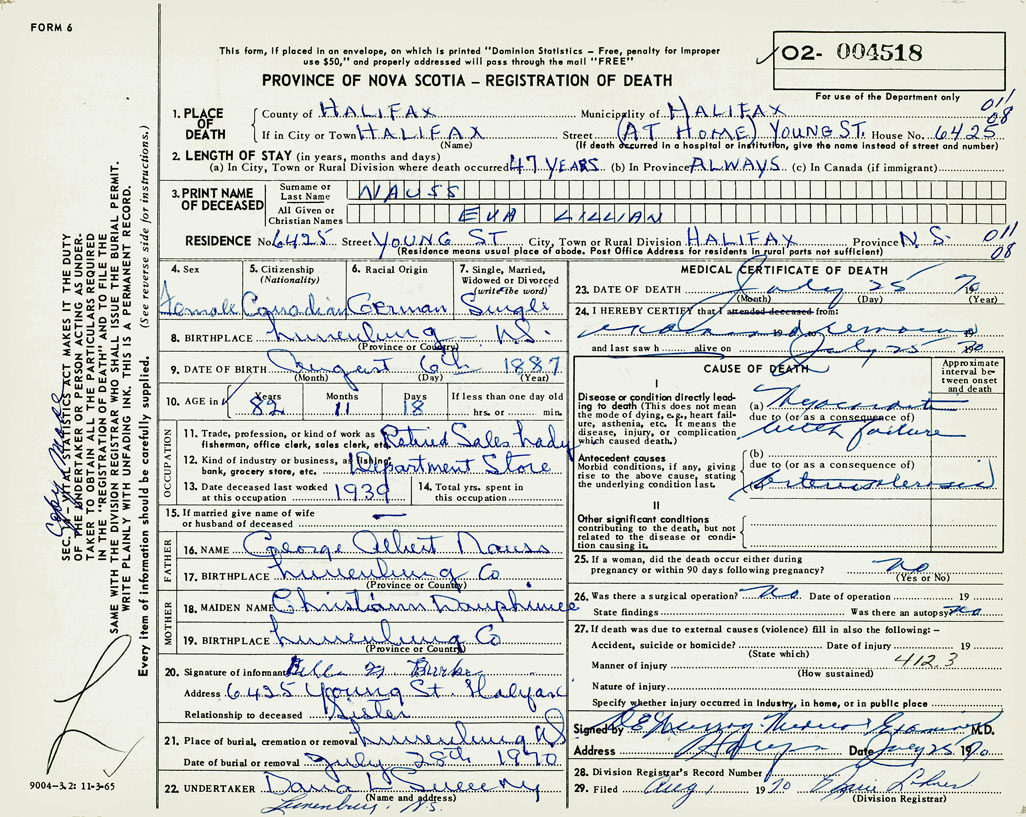 FORM 6
This form, if placed in an envelope, on which is printed "Dominion Statistics – Free, penalty for improper
use $50," and properly addressed will pass through the mail "FREE"
PROVINCE OF NOVA SCOTIA – REGISTRATION OF DEATH
O2- 004518
For use of the Department only
011
08
1. PLACE OF DEATH County of HALIFAX Municipality of HALIFAX
If in City or Town HALIFAX Street (AT HOME) YOUNG ST. House No. 6425
(Name) (If death occurred in a hospital or institution, give the name instead of street and number)
2. LENGTH OF STAY (in years, months and days)
(a) In City, Town or Rural Division where death occurred 47 YEARS (b) In Province ALWAYS (c) In Canada (if immigrant)
3. PRINT NAME OF DECEASED Surname or Last Name NAUSS
All Given or Christian Names EVA LILLIAN
RESIDENCE No. 6425 Street YOUNG ST City, Town or Rural Division HALIFAX Province N.S. 011
(Residence means usual place of abode. Post Office Address for residents in rural parts not sufficient) 08
4. Sex 5. Citizenship (Nationality) 6. Racial Origin 7. Single, Married, Widowed or Divorced (write the word)
Female Canadian German Single
8. BIRTHPLACE Lunenburg N.S.
(Province or Country)
9. DATE OF BIRTH August 6th 1887
(Month) (Day) (Year)
10. AGE in Years Months Days If less than one day old
82 11 18 hrs. or min.
OCCUPATION
11. Trade, profession, or kind of work as fisherman, office clerk, sales clerk, etc. Retired Sales Lady
12. Kind of industry or business, as fishing, bank, grocery store, etc. Department Store
13. Date deceased last worked at this occupation 1939 14. Total yrs. spent in this occupation
15. If married give name of wife or husband of deceased —
FATHER
16. NAME George Albert Nauss
17. BIRTHPLACE Lunenburg Co
(Province or Country)
MOTHER
18. MAIDEN NAME Christiann Dauphinee
19. BIRTHPLACE Lunenburg Co
(Province or Country)
20. Signature of informant Burke
Address 6425 Young St. Halifax
Relationship to deceased Sister
21. Place of burial, cremation or removal Lunenburg NS
Date of burial or removal July 28th 1970
22. UNDERTAKER Dana L Sweeny
(Name and address)
Lunenburg, N.S.
MEDICAL CERTIFICATE OF DEATH
23. DATE OF DEATH July 25 70
(Month) (Day) (Year)
24. I HEREBY CERTIFY that I attended deceased from:
19 to 19
and last saw h alive on July 25 1970
CAUSE OF DEATH
Approximate interval between onset and death
I
Disease or condition directly leading to death (This does not mean the mode of dying, e.g., heart failure, asthenia, etc. It means the disease, injury, or complication which caused death.)
(a) Myocardial
due to (or as a consequence of)
failure
Antecedent causes
Morbid conditions, if any, giving rise to the above cause, stating the underlying condition last.
(b)
due to (or as a consequence of)
(c) Arteriosclerosis
II
Other significant conditions contributing to the death, but not related to the disease or condition causing it.
25. If a woman, did the death occur either during pregnancy or within 90 days following pregnancy? No
(Yes or No)
26. Was there a surgical operation? No. Date of operation 19
State findings Was there an autopsy? No
27. If death was due to external causes (violence) fill in also the following: –
Accident, suicide or homicide? Date of injury 19
(State which) 412.3
Manner of injury
(How sustained)
Nature of injury
Specify whether injury occurred in Industry, in home, or in public place
Signed by Murray Medical Examiner M.D.
Address Halifax Date July 25 1970
28. Division Registrar's Record Number
29. Filed Aug 1 1970
(Division Registrar)
SEC. 14 – VITAL STATISTICS ACT MAKES IT THE DUTY
OF THE UNDERTAKER OR PERSON ACTING AS UNDER-
TAKER TO OBTAIN ALL THE PARTICULARS REQUIRED
IN THE "REGISTRATION OF DEATH" AND TO FILE THE
SAME WITH THE DIVISION REGISTRAR WHO SHALL ISSUE THE BURIAL PERMIT.
WRITE PLAINLY WITH UNFADING INK. THIS IS A PERMANENT RECORD.
Every item of information should be carefully supplied. (See reverse side for instructions.)
9004-3.2: 11-3-65